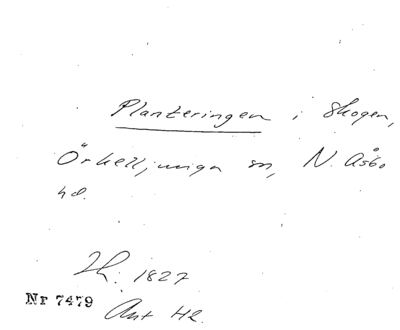 Planteringen i Skogen,
Örkelljunga sn, N. Åsbo
hd.
1827
Nr 7479